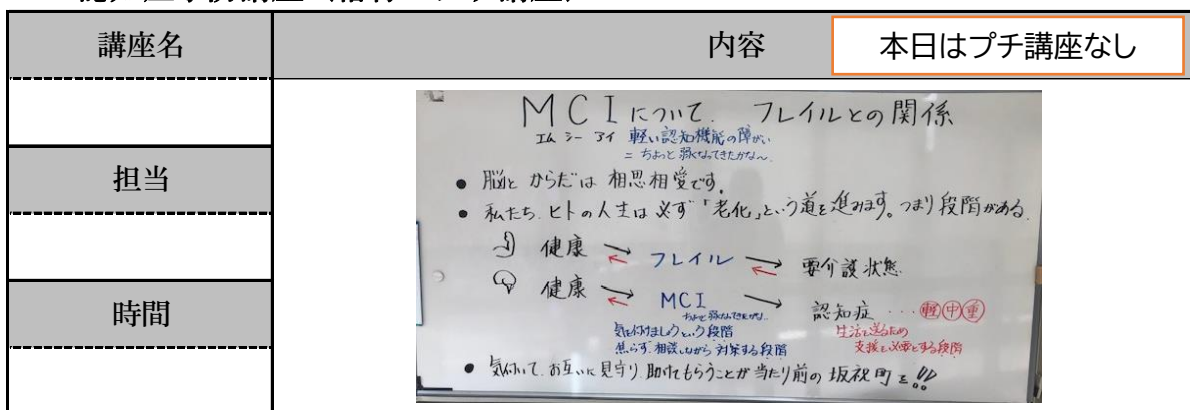 講座名
内容
本日はプチ講座なし
担当
時間
MCIについて. フレイルとの関係
エム シー アイ 軽い認知機能の障がい
= ちょっと弱くなってきたかな〜.
● 脳と からだは 相思相愛です.
● 私たち. ヒトの人生は 必ず「老化」という道を進みます。つまり段階がある.
健康 フレイル 要介護状態.
健康 MCI 認知症 ・・・ 軽 中 重
ちょっと弱くなってきたかな..
気を付けましょうという段階
焦らず. 相談しながら 対策する段階
生活を送るため
支援を必要とする段階
● 気付いて. お互いに見守り. 助けてもらうことが 当たり前の 坂祝町を!!